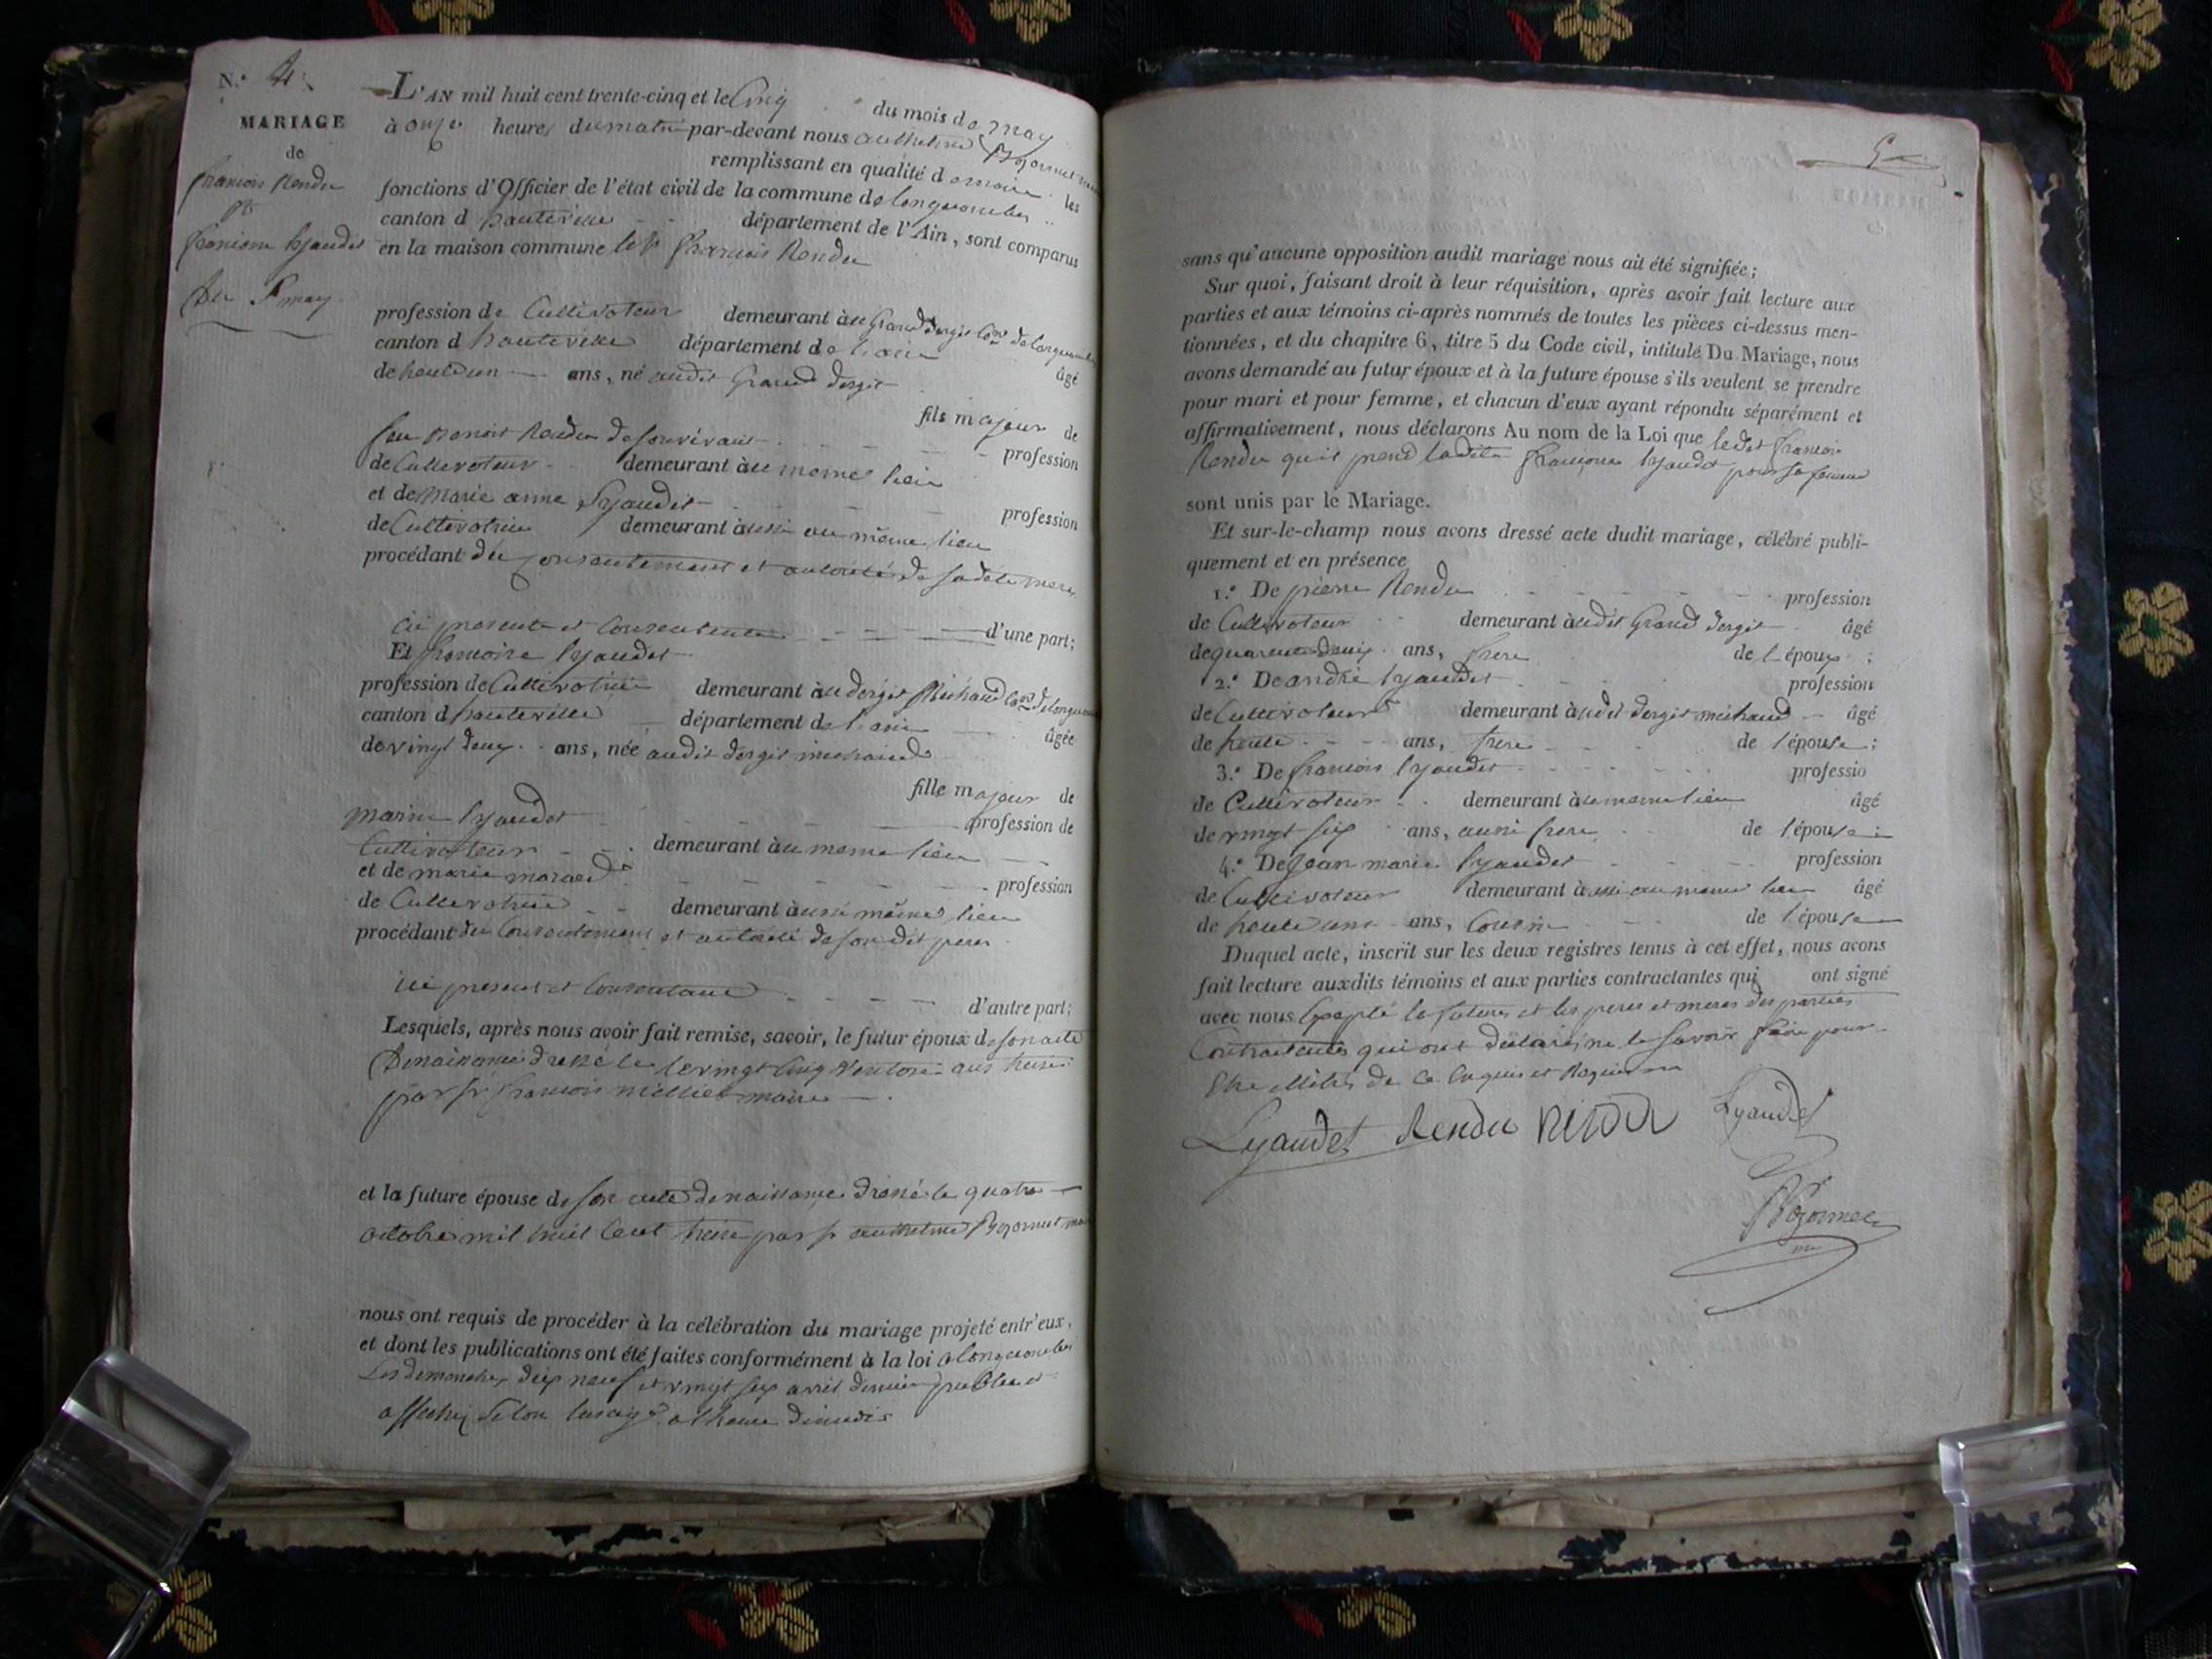 N.° 4
MARIAGE
de
francois Rendu
et
francoise lyaudet
du 5 may
L'AN mil huit cent trente-cinq et le Cinq du mois de may
à onze heures du matin par-devant nous anthelme Bozonnet
remplissant en qualité de maire les
fonctions d'Officier de l'état civil de la commune de longecombe
canton d hauteville département de l'Ain, sont comparus
en la maison commune le sr francois Rendu
profession de Cultivateur demeurant au Grand dergis Con de longecombe
canton d hauteville département de l'ain
âgé
de ans, né audit Grand dergis
fils majeur de
feu Benoit Rendu de son vivant profession
de Cultivateur demeurant au meme lieu
et de Marie anne Lyaudet
profession
de Cultivatrice demeurant aussi au même lieu
procédant du consentement et autorité de sadite mere
ici presente et consentente d'une part;
Et francoise lyaudet
profession de Cultivatrice demeurant au dergis Michaud Con de longecombe
canton d hauteville département de l'ain
âgée
de vingt deux ans, née audit dergis michaud
fille majeur de
marin lyaudet profession de
Cultivateur demeurant au meme lieu
et de marie profession
de Cultivatrice demeurant aussi même lieu
procédant du Consentement et autorité de son dit pere
ici present et Consentant
d'autre part;
Lesquels, après nous avoir fait remise, savoir, le futur époux de son acte
de naissance dressé le vingt Cinq Ventose
par sr francois maire
et la future épouse de son acte de naissance dressé le quatre
octobre mil huit Cent treize par sr anthelme Bozonnet maire
nous ont requis de procéder à la célébration du mariage projeté entr'eux,
et dont les publications ont été faites conformément à la loi a longecombe
Les dimanches dix neuf et vingt six avril dernier publié et
affiché selon l'usage a l'heure de midi
5
sans qu'aucune opposition audit mariage nous ait été signifiée;
Sur quoi, faisant droit à leur réquisition, après avoir fait lecture aux
parties et aux témoins ci-après nommés de toutes les pièces ci-dessus men-
tionnées, et du chapitre 6, titre 5 du Code civil, intitulé Du Mariage, nous
avons demandé au futur époux et à la future épouse s'ils veulent se prendre
pour mari et pour femme, et chacun d'eux ayant répondu séparément et
affirmativement, nous déclarons Au nom de la Loi que ledit francois
Rendu qu'il prend ladite francoise lyaudet pour sa femme
sont unis par le Mariage.
Et sur-le-champ nous avons dressé acte dudit mariage, célébré publi-
quement et en présence
1.° De pierre Rendu profession
de Cultivateur demeurant audit Grand dergis âgé
de quarente deux ans, frere de l'époux;
2.° De andré lyaudet profession
de Cultivateur demeurant audit dergis michaud âgé
de trente ans, frere de l'épouse;
3.° De francois lyaudet professio
de Cultivateur demeurant au meme lieu âgé
de vingt six ans, aussi frere de l'épouse;
4.° De Jean marie lyaudet profession
de Cultivateur demeurant aussi au meme lieu âgé
de trente ans, Cousin de l'épouse
Duquel acte, inscrit sur les deux registres tenus à cet effet, nous avons
fait lecture auxdits témoins et aux parties contractantes qui ont signé
avec nous Excepté la future et les peres et meres des parties
Contractantes qui ont déclaré ne le savoir faire pour
Etre illitérés de ce Enquis et Requis
Lyaudet Rendu Lyaudet
Bozonnet